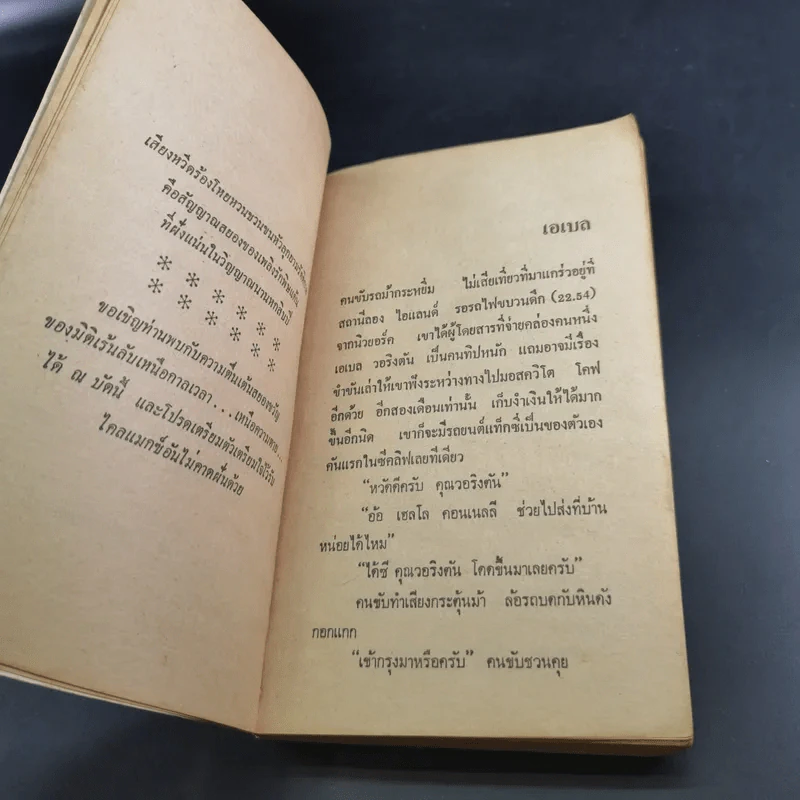 เสียงหวีดร้องโหยหวนชวนขนหัวลุก
คือสัญญาณสยองของเพลิงรักพิษแค้น
ที่ฝังแน่นในวิญญาณนานหกสิบปี
* * * * * *
* * * * * *
ขอเชิญท่านพบกับความตื่นเต้นสยองขวัญ
ของมิติเร้นลับเหนือกาลเวลา...เหนือความตาย...
ได้ ณ บัดนี้ และโปรดเตรียมตัวเตรียมใจไว้รับ
ไคลแมกซ์อันไม่คาดฝันด้วย
เอเบล
คนขับรถม้ากระหยิ่ม ไม่เสียเที่ยวที่มาแกร่วอยู่ที่
สถานีลอง ไอแลนด์ รอรถไฟขบวนดึก (22.54)
จากนิวยอร์ค เขาได้ผู้โดยสารที่จ่ายคล่องคนหนึ่ง
เอเบล วอริงตัน เป็นคนทิปหนัก แถมอาจมีเรื่อง
ขำขันเล่าให้เขาฟังระหว่างทางไปมอสควิโต โคฟ
อีกด้วย อีกสองเดือนเท่านั้น เก็บงำเงินให้ได้มาก
ขึ้นอีกนิด เขาก็จะมีรถยนต์แท็กซี่เป็นของตัวเอง
คันแรกในซีคลิฟเลยทีเดียว
“หวัดดีครับ คุณวอริงตัน”
“อ้อ เฮลโล คอนเนลลี ช่วยไปส่งที่บ้าน
หน่อยได้ไหม”
“ได้ซี คุณวอริงตัน โดดขึ้นมาเลยครับ”
คนขับทำเสียงกระตุ้นม้า ล้อรถบดกับหินดัง
กอกแกก
“เข้ากรุงมาหรือครับ” คนขับชวนคุย